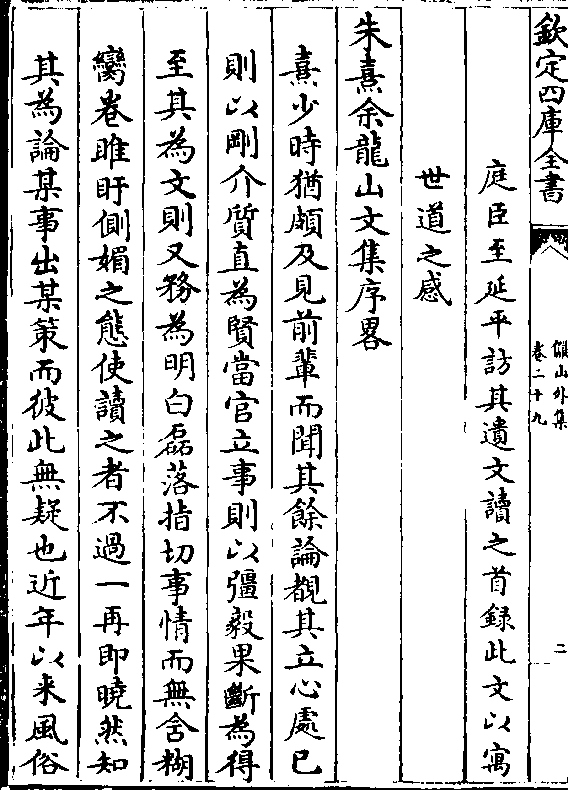 欽定四庫全書
儼山外集
卷二十九
二
庭臣至延平訪其遺文讀之首録此文以寓
世道之感
朱熹余龍山文集序畧
熹少時猶頗及見前輩而聞其餘論覩其立心處已
則以剛介質直為賢當官立事則以彊毅果斷為得
至其為文則又務為明白磊落指切事情而無含糊
臠卷雎盱側媚之態使讀之者不過一再即曉然知
其為論某事出某策而彼此無疑也近年以來風俗